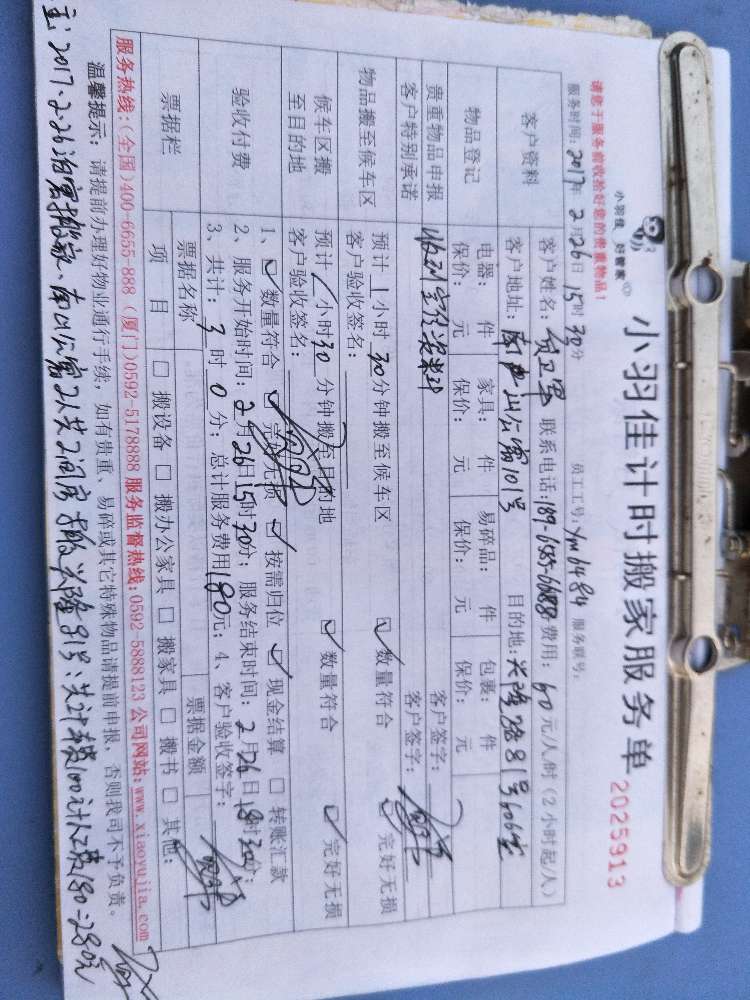 小羽佳 好管家
小羽佳计时搬家服务单
2025913
请您于服务前收拾好您的贵重物品！
员工工号：ym6484 服务联号：
服务时间：2017年2月26日15时30分
客户资料
客户姓名： 联系电话：189-6535-6688 费用：60元/人/时（2小时起/人）
客户地址： 山公寓101号 目的地：兴隆路81号606室
物品登记
电器： 件 家具： 件 易碎品： 件 包裹： 件
保价： 元 保价： 元 保价： 元 保价： 元
贵重物品申报 客户签字：
客户特别承诺 客户签字：
物品搬至候车区
预计1小时30分钟搬至候车区 ☑数量符合 ☑完好无损
客户验收签名：
候车区搬至目的地
预计1小时30分钟搬至目的地 ☑数量符合 ☑完好无损
客户验收签名：
验收付费
1、☑数量符合 ☑完好无损 ☑按需归位 ☑现金结算 □转账汇款
2、服务开始时间：2月26日15时30分；服务结束时间：2月26日18时30分；
3、共计：3时0分；总计服务费用180元；4、客户验收签字：
票据栏
票据名称 票据金额
项目 □搬设备 □搬办公家具 □搬家具 □搬书 □其他：
服务热线：（全国）400-6655-888（厦门）0592-5178888 服务监督热线：0592-5888123 公司网站：www.xiaoyujia.com
温馨提示：请提前办理好物业通行手续，如有贵重、易碎或其它特殊物品请提前申报，否则我司不予负责。
2017.2.26 搬家、南山公寓 共2间房 兴隆81号：共计 100 180=280元